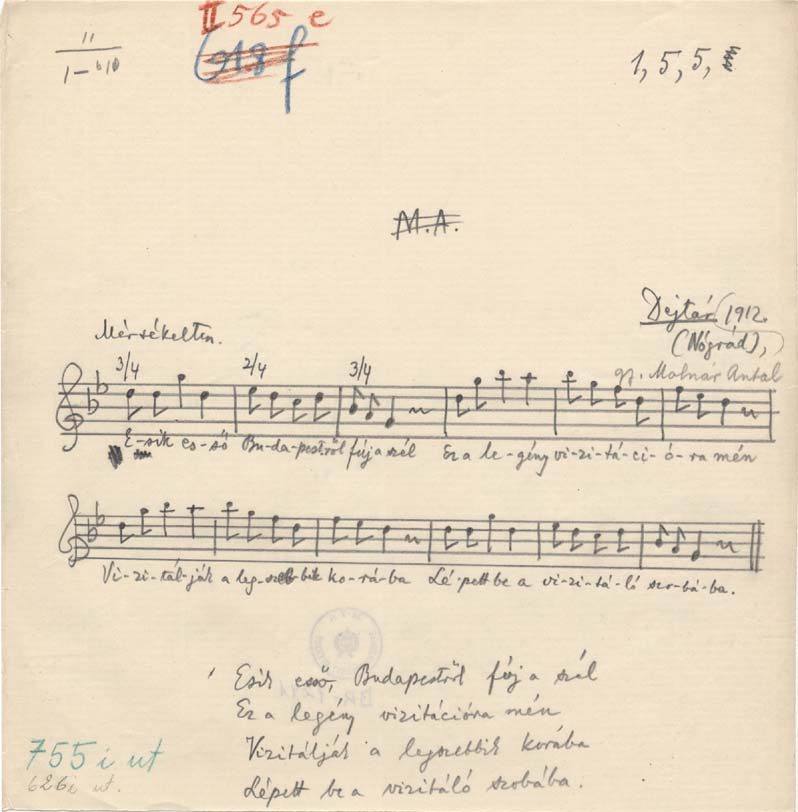 II 565 e
11
1–b10
618 f
1, 5, 5,
M.A.
Dejtár, 1912.
(Nógrád),
gy. Molnár Antal
Mérsékelten.
3/4 2/4 3/4
E-sik es-ső Bu-da-pestről fúj a szél Ez a le-gény vi-zi-tá-ci-ó-ra mén
Vi-zi-tál-ják a leg-szebb-bik ko-rá-ba Lé-pett be a vi-zi-tá-ló szo-bá-ba.
Esik eső, Budapestről fúj a szél
Ez a legény vizitációra mén
Vizitálják a legszebbik korába
Lépett be a vizitáló szobába.
755 i ut
626 i ut.